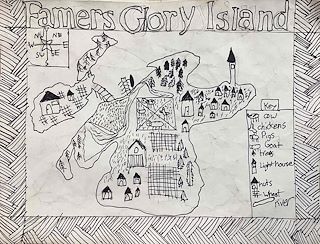 Famers Glory Island
N NE
W E
SW SE
Key
cow
chickens
Pigs
Goat
trees
Light house
huts
Wheat
river